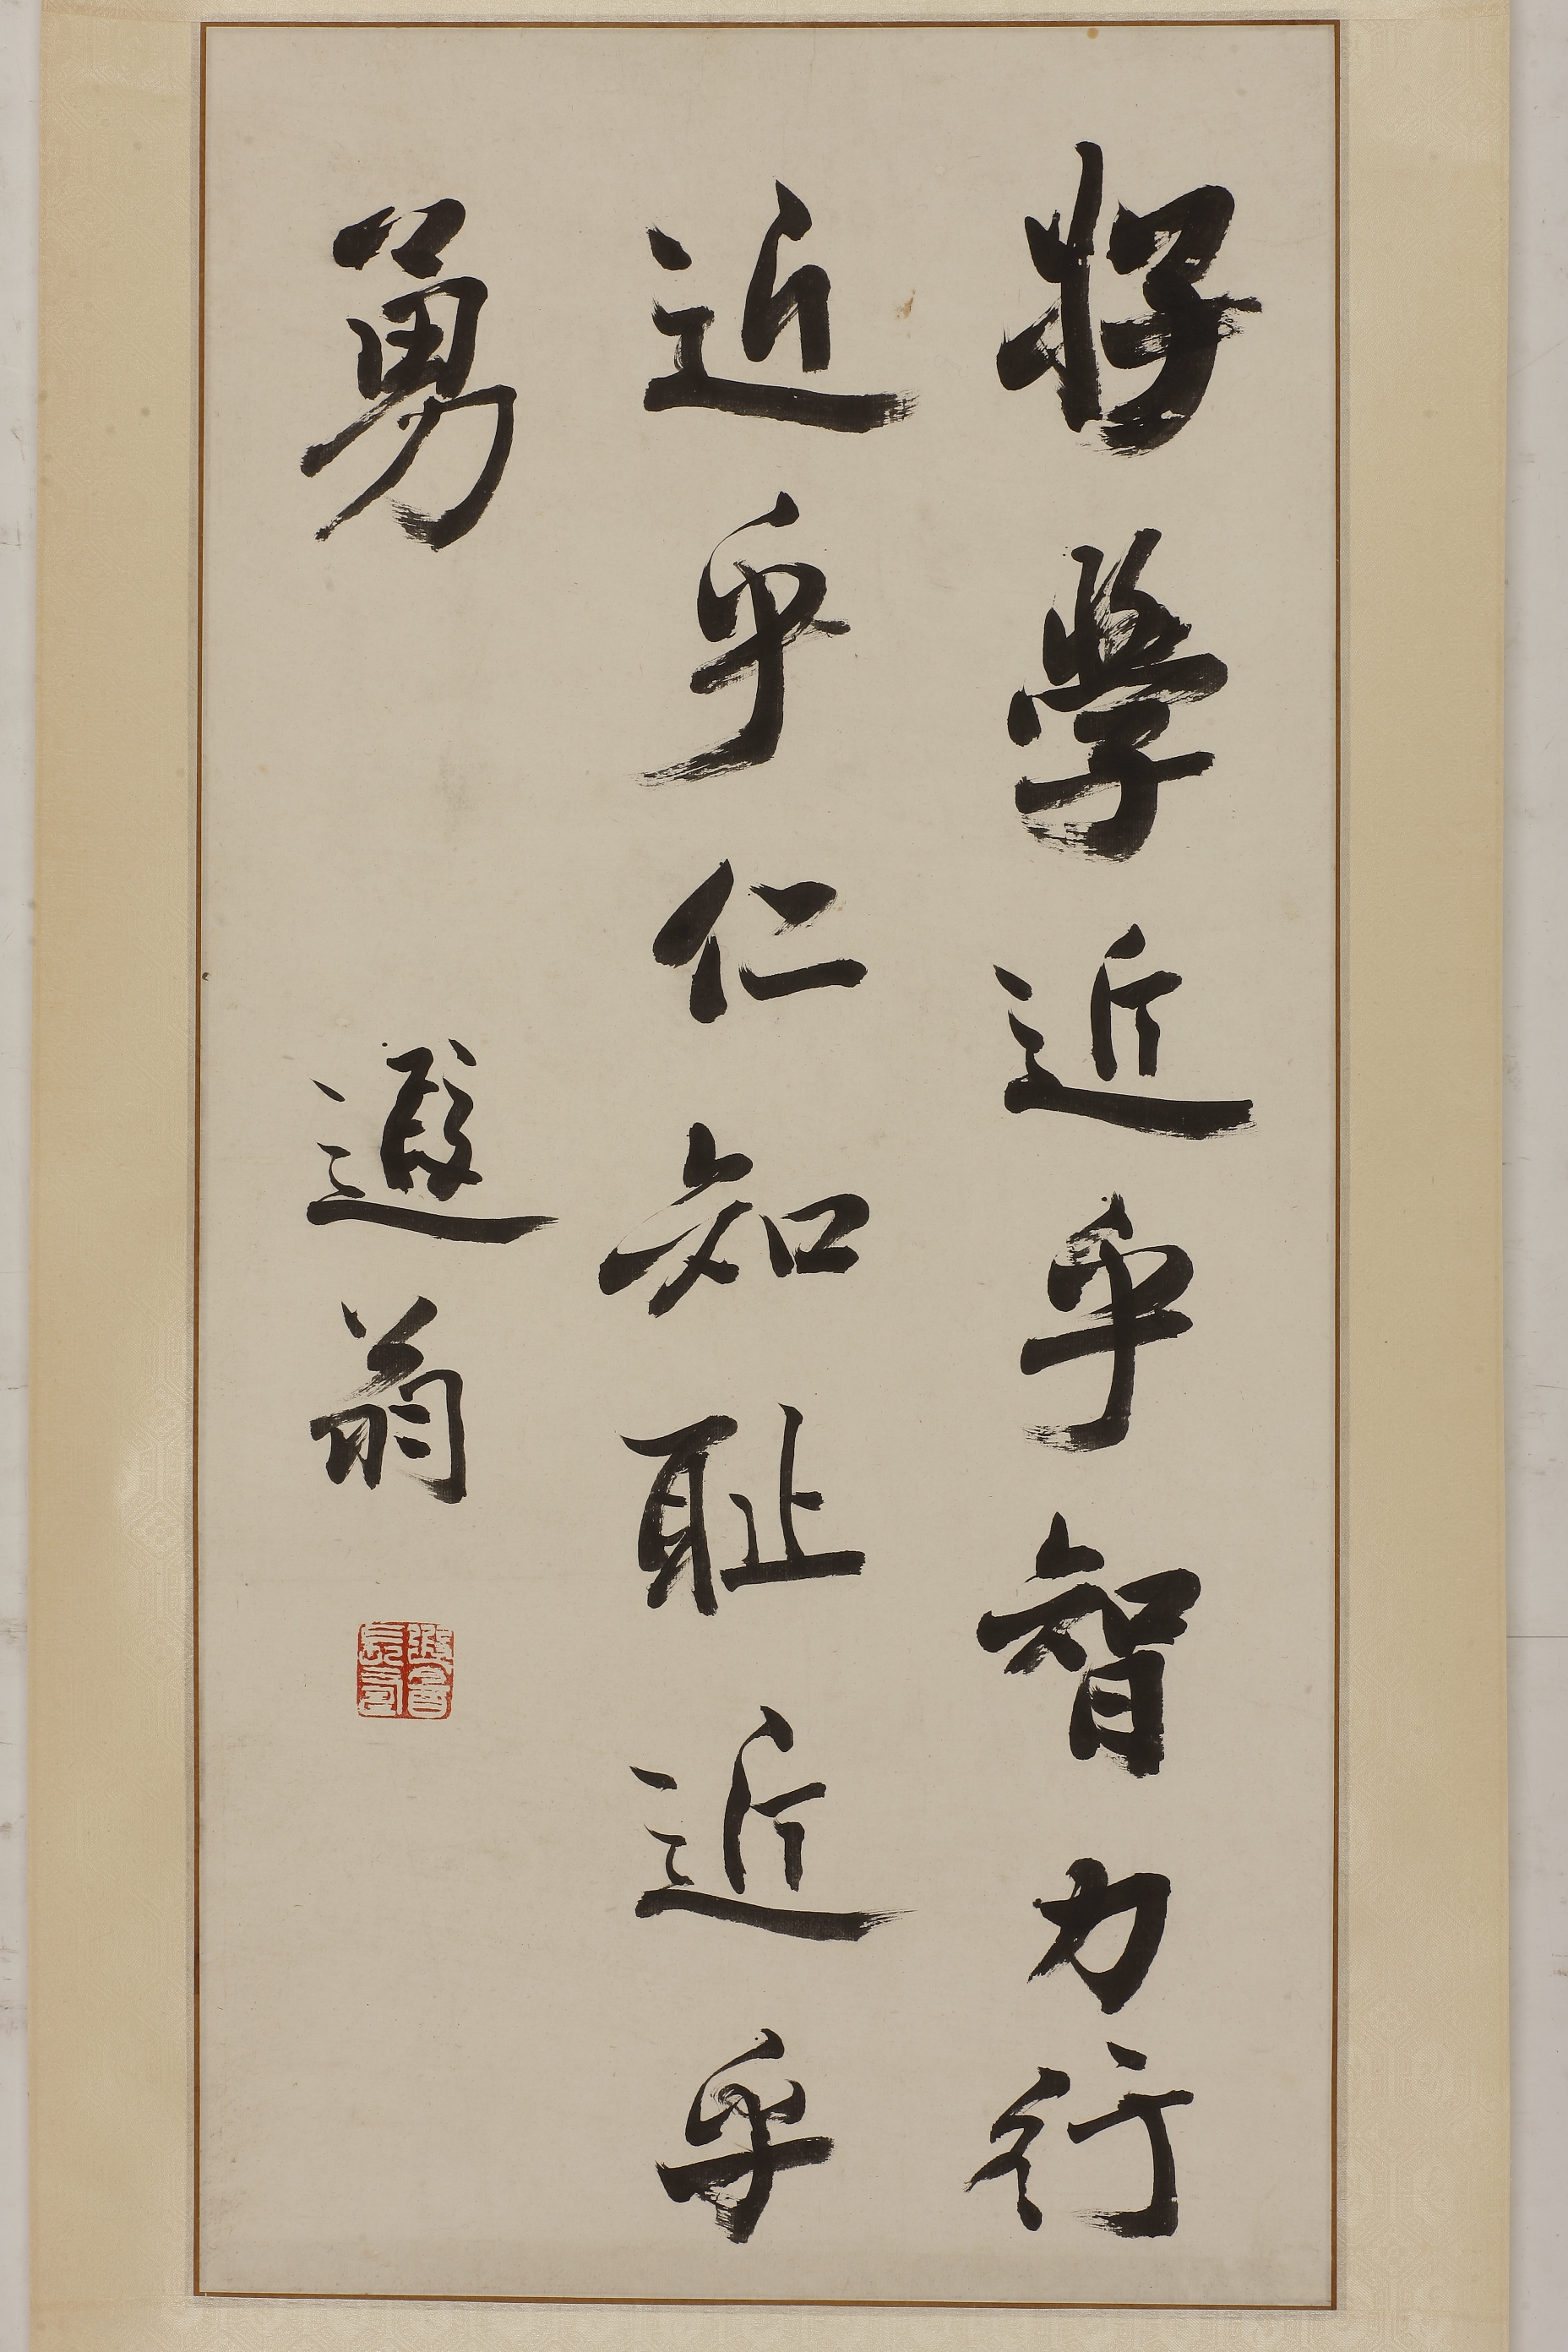 好學近乎智力行
近乎仁知耻近乎
勇
遐翁